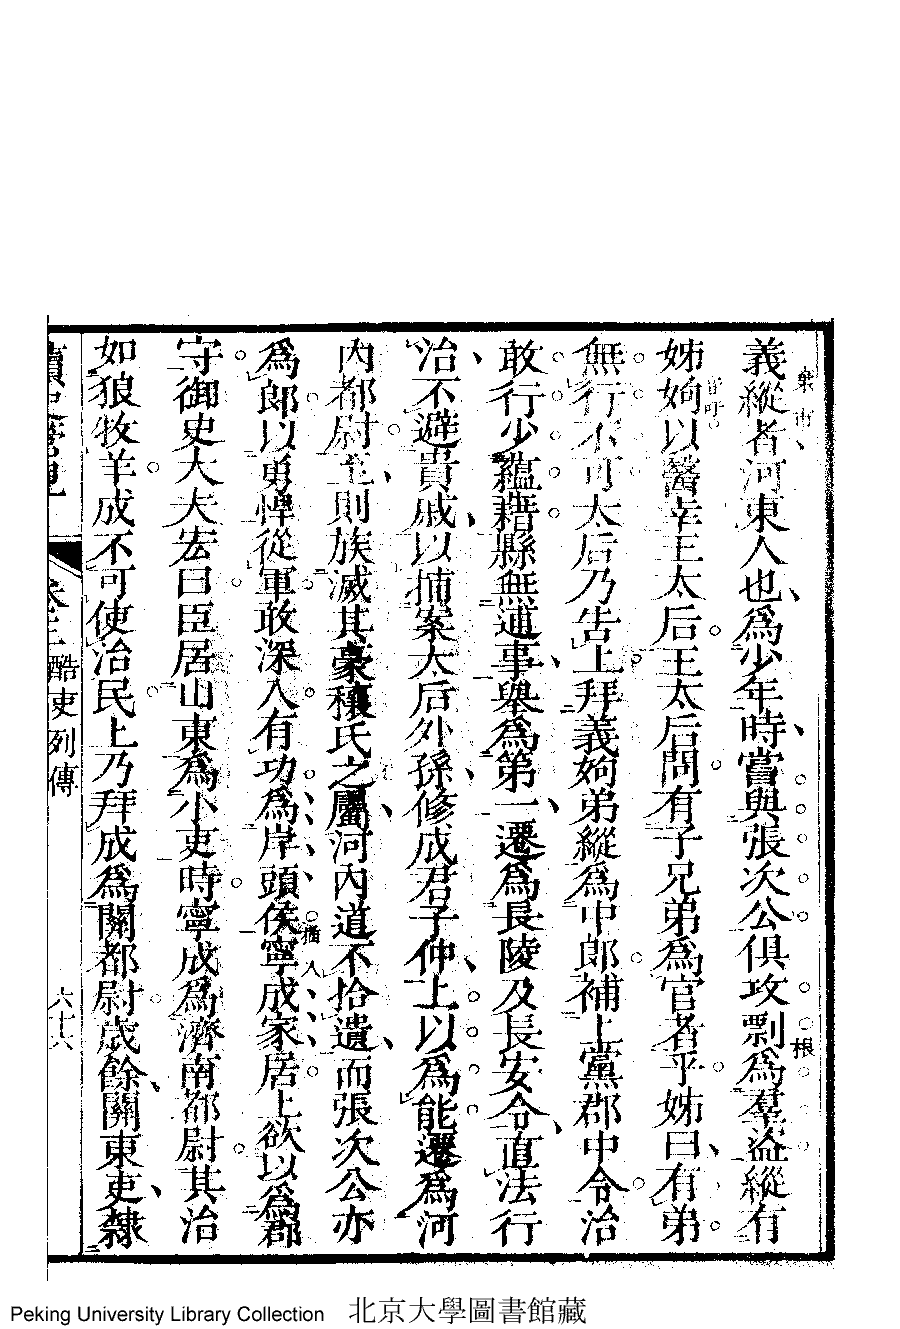 義縱者河東人也為少年時嘗與張次公俱攻剽為羣盜縱有
根
姊姁以醫幸王太后王太后問有子兄弟為官者乎姊曰有弟
無行不可太后乃告上拜義姁弟縱為中郎補上黨郡中令治
敢行少蘊藉縣無逋事舉為第一遷為長陵及長安令直法行
治不避貴戚以捕案太后外孫修成君子仲上以為能遷為河
內都尉至則族滅其豪穰氏之屬河內道不拾遺而張次公亦
為郎以勇悍從軍敢深入有功為岸頭侯寧成家居上欲以為郡
插入
守御史大夫宏曰臣居山東為小吏時寧成為濟南都尉其治
如狼牧羊成不可使治民上乃拜成為關都尉歲餘關東吏隸
讀史管見
卷三 酷吏列傳
六十六
Peking University Library Collection 北京大學圖書館藏